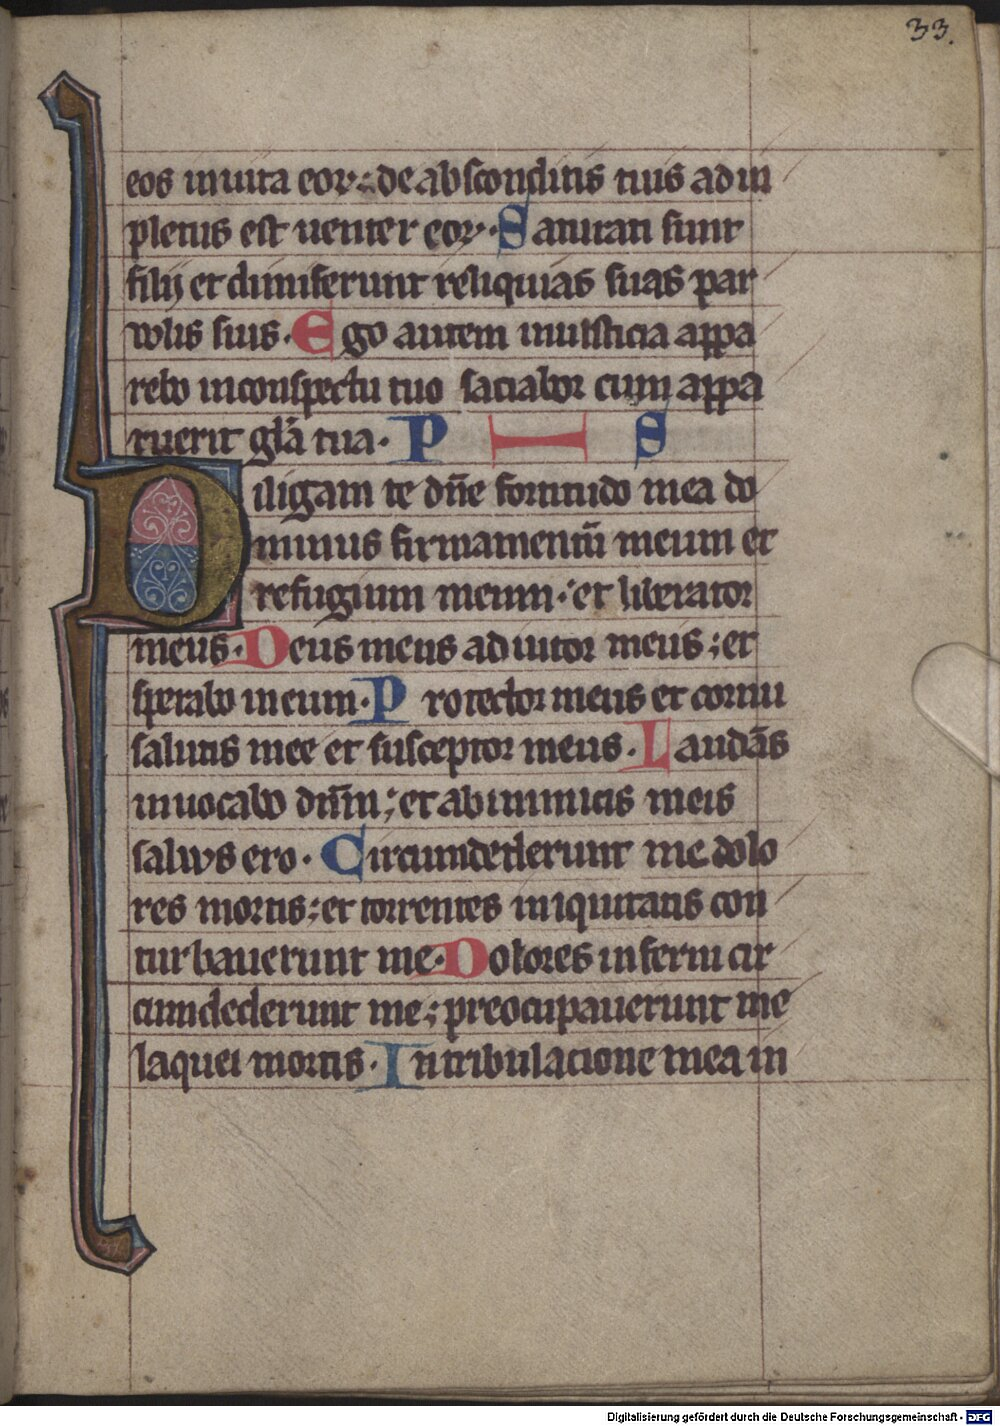 33.
eos in uita eoꝝ : de absconditis tuis ad in
pletus est uenter eoꝝ . Saturati sunt
filij et dimiserunt reliquias suas par
wlis suis . Ego autem in iusticia appa
rebo in conspectu tuo saciabor cum appa
ruerit gl̄a tua . P I S
Diligam te dn̄e fortitudo mea do
minus firmamentū meum et
refugium meum : et liberator
meus . Deus meus adiutor meus : et
sperabo in eum . Protector meus et cornu
salutis mee et susceptor meus . Laudās
inuocabo dn̄m ; et ab inimicis meis
saluus ero . Circumdederunt me dolo
res mortis ; et torrentes iniquitatis con
turbauerunt me . Dolores inferni cir
cumdederunt me ; preocupauerunt me
laquei mortis . In tribulacione mea in
Digitalisierung gefördert durch die Deutsche Forschungsgemeinschaft - DFG